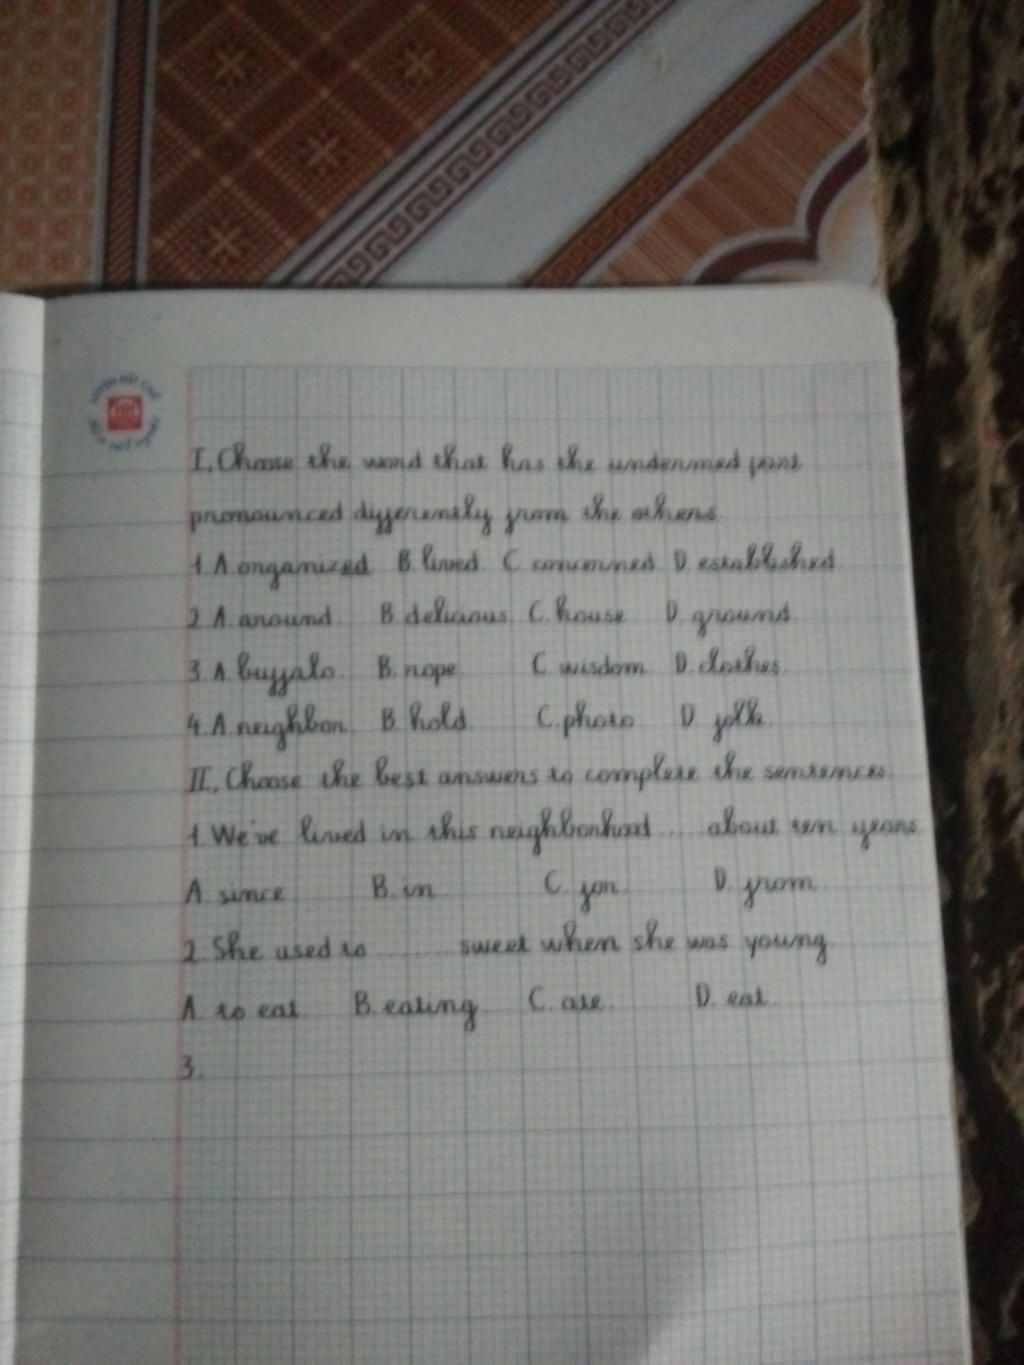 I, Choose the word that has the underined part
pronounced differently from the others
1. A organized B. lived C concerned D. established
2 A. around B. delicious C. house D. ground
3. A. buffalo B. rope C. wisdom D. clothes
4. A. neighbor B. hold C. photo D folk
II, Choose the best answers to complete the sentences.
1. We've lived in this neighborhood ..... about ten years
A. since B. in C. for D. from
2. She used to ........ sweet when she was young
A. to eat B. eating C. ate D. eat
3.